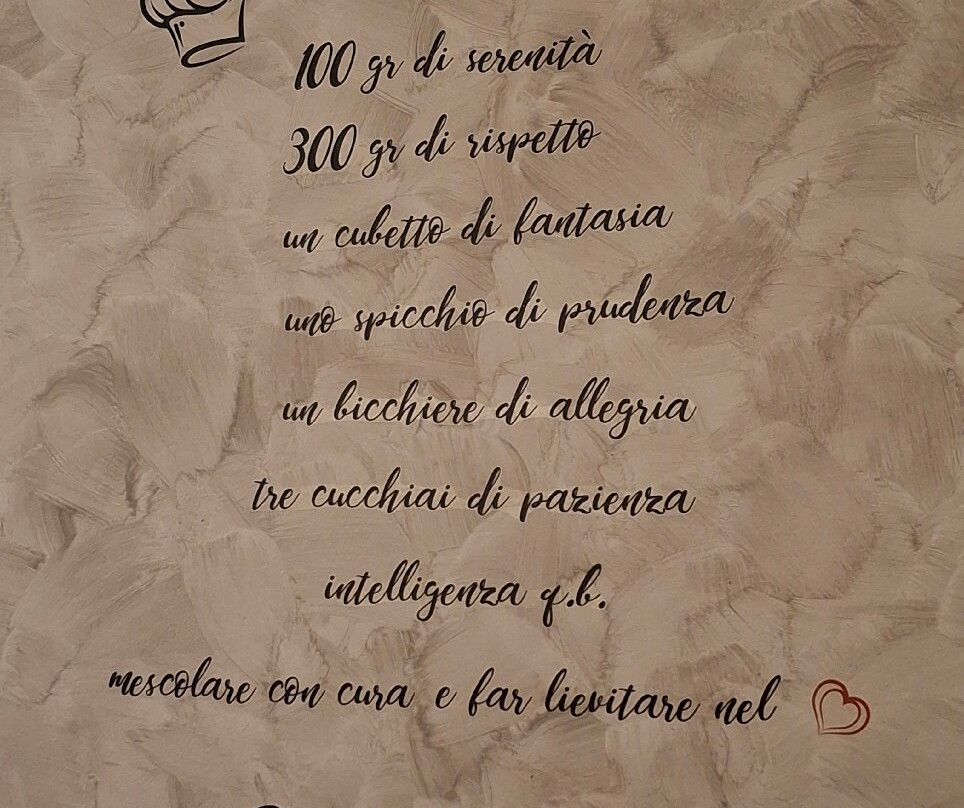 100 gr di serenità
300 gr di rispetto
un cubetto di fantasia
uno spicchio di prudenza
un bicchiere di allegria
tre cucchiai di pazienza
intelligenza q.b.
mescolare con cura e far lievitare nel